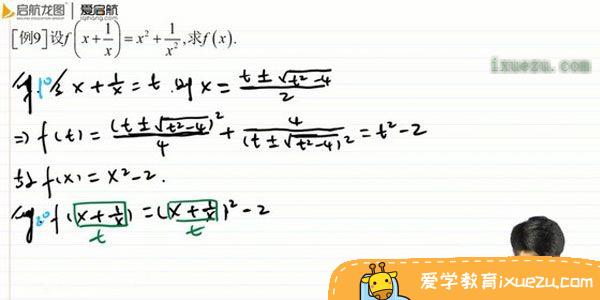 启航龙图 爱启航
iqihang.com
[例9]设f(x+1/x)=x²+1/x²,求f(x).
ixuezu.com
解1° 令 x+1/x=t.则x=(t±√(t²-4))/2
⇒ f(t)=(t±√(t²-4))²/4+4/(t±√(t²-4))²=t²-2
故f(x)=x²-2.
解2° f(x+1/x)=(x+1/x)²-2
t t
爱学教育ixuezu.com